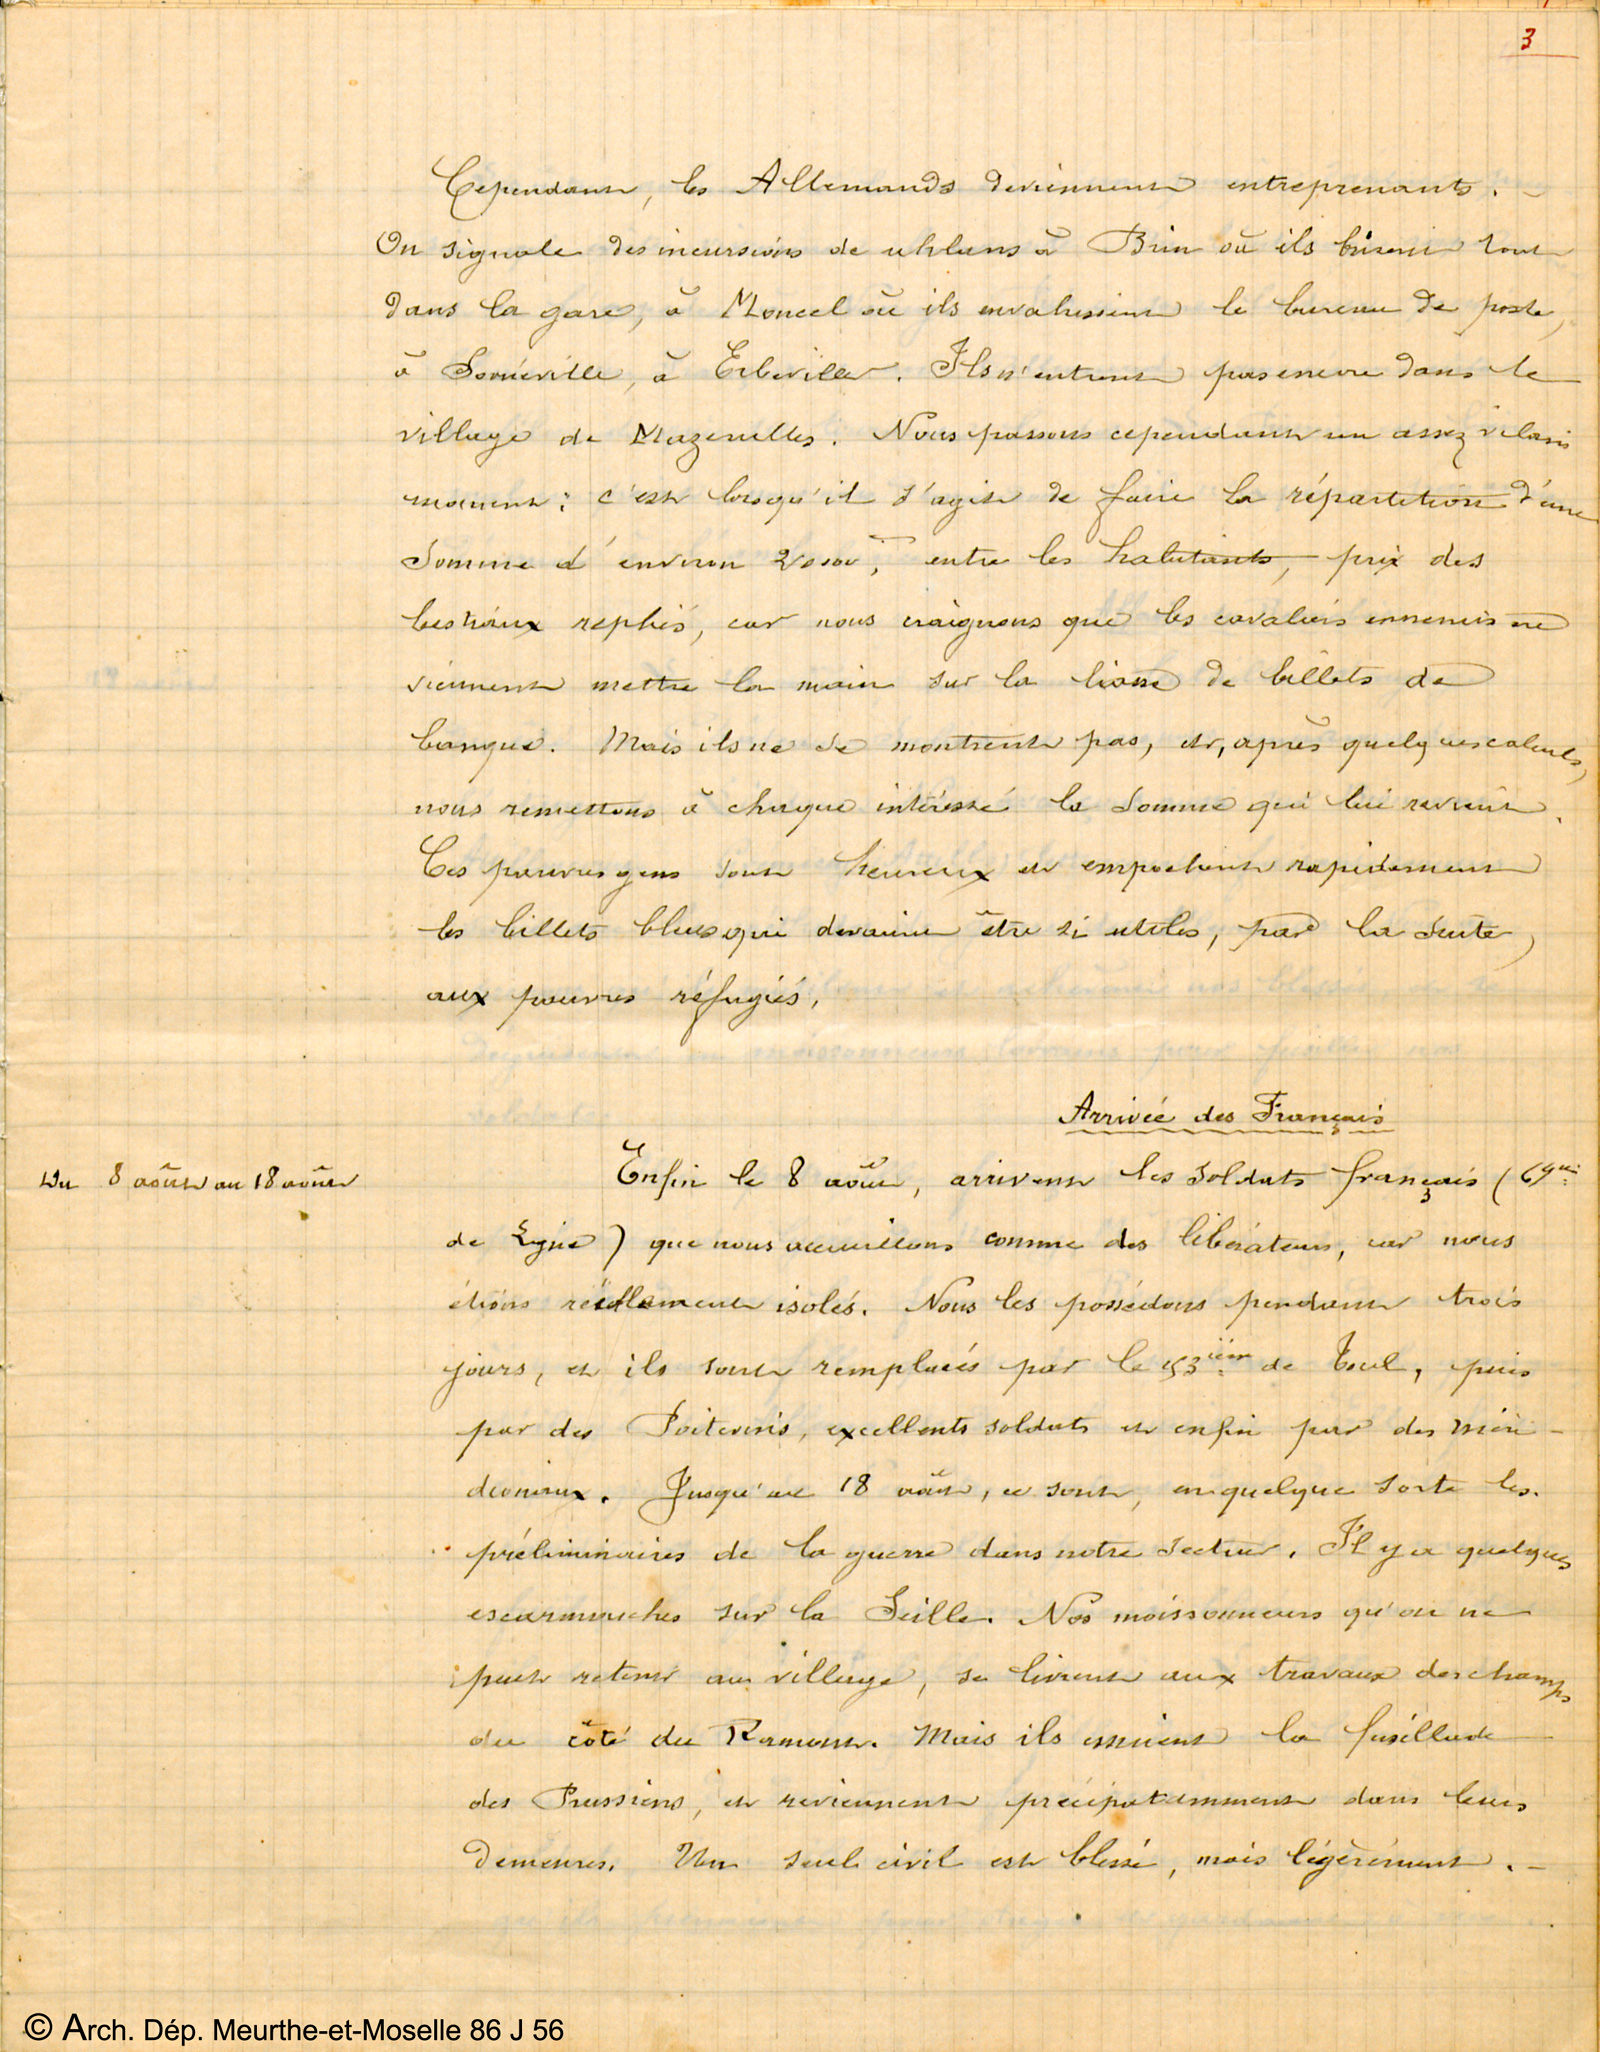 3
Cependant, les Allemands deviennent entreprenants. –
On signale des incursions de uhlans à Brin où ils brisent tout
dans la gare, à Moncel où ils envahissent le bureau de poste,
à Sornéville, à Erbeviller. Ils n'entrent pas encore dans le
village de Mazerulles. Nous passons cependant un assez vilain
moment : c'est lorsqu'il s'agit de faire la répartition d'une
somme d'environ entre les habitants, prix des
bestiaux repliés, car nous craignons que les cavaliers ennemis ne
viennent mettre la main sur la liasse de billets de
banque. Mais ils ne se montrent pas, et, après quelques calculs,
nous remettons à chaque intéressé la somme qui lui revient.
Ces pauvres gens sont heureux et empochent rapidement
les billets bleus qui devaient être si utiles, par la suite,
aux pauvres réfugiés.
Arrivée des Français
Du 8 août au 18 août
Enfin le 8 août, arrivent les soldats français (69me
de Ligne) que nous accueillons comme des libérateurs, car nous
étions réellement isolés. Nous les possédons pendant trois
jours, et ils sont remplacés par le 153ième de Toul, puis
par des Poitevins, excellents soldats et enfin par des méri-
dionaux. Jusqu'au 18 août, ce sont, en quelque sorte les
préliminaires de la guerre dans notre secteur. Il y a quelques
escarmouches sur la Seille. Nos moissonneurs qu'on ne
peut retenir au village, se livrent aux travaux des champs
du côté du Ramont. Mais ils essuient la fusillade
des Prussiens, et reviennent précipitamment dans leurs
demeures. Un seul civil est blessé, mais légèrement. –
© Arch. Dép. Meurthe-et-Moselle 86 J 56